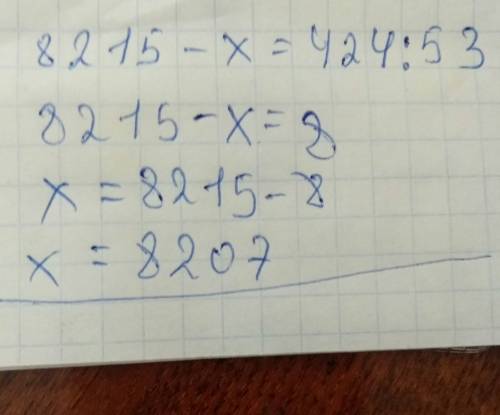 8215 - x = 424:53
8215 - x = 8
x = 8215 - 8
x = 8207